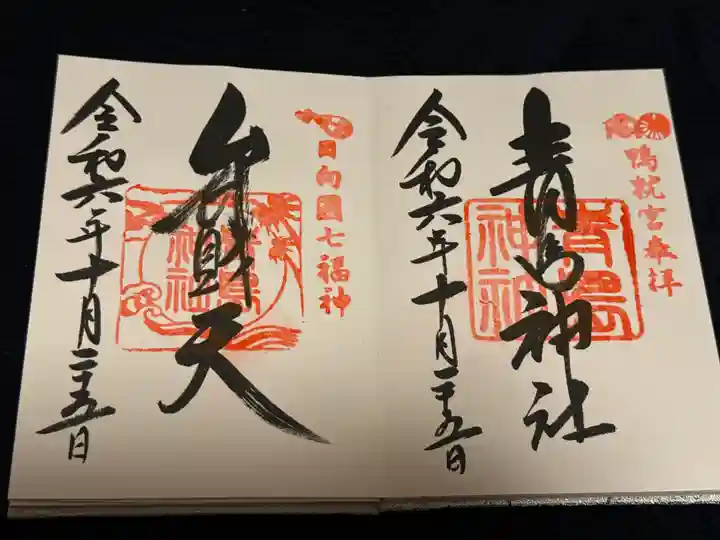 鴨就宮奉拝
青島神社
青島神社
令和六年十月二十五日
日向國七福神
弁財天
青島神社
令和六年十月二十五日